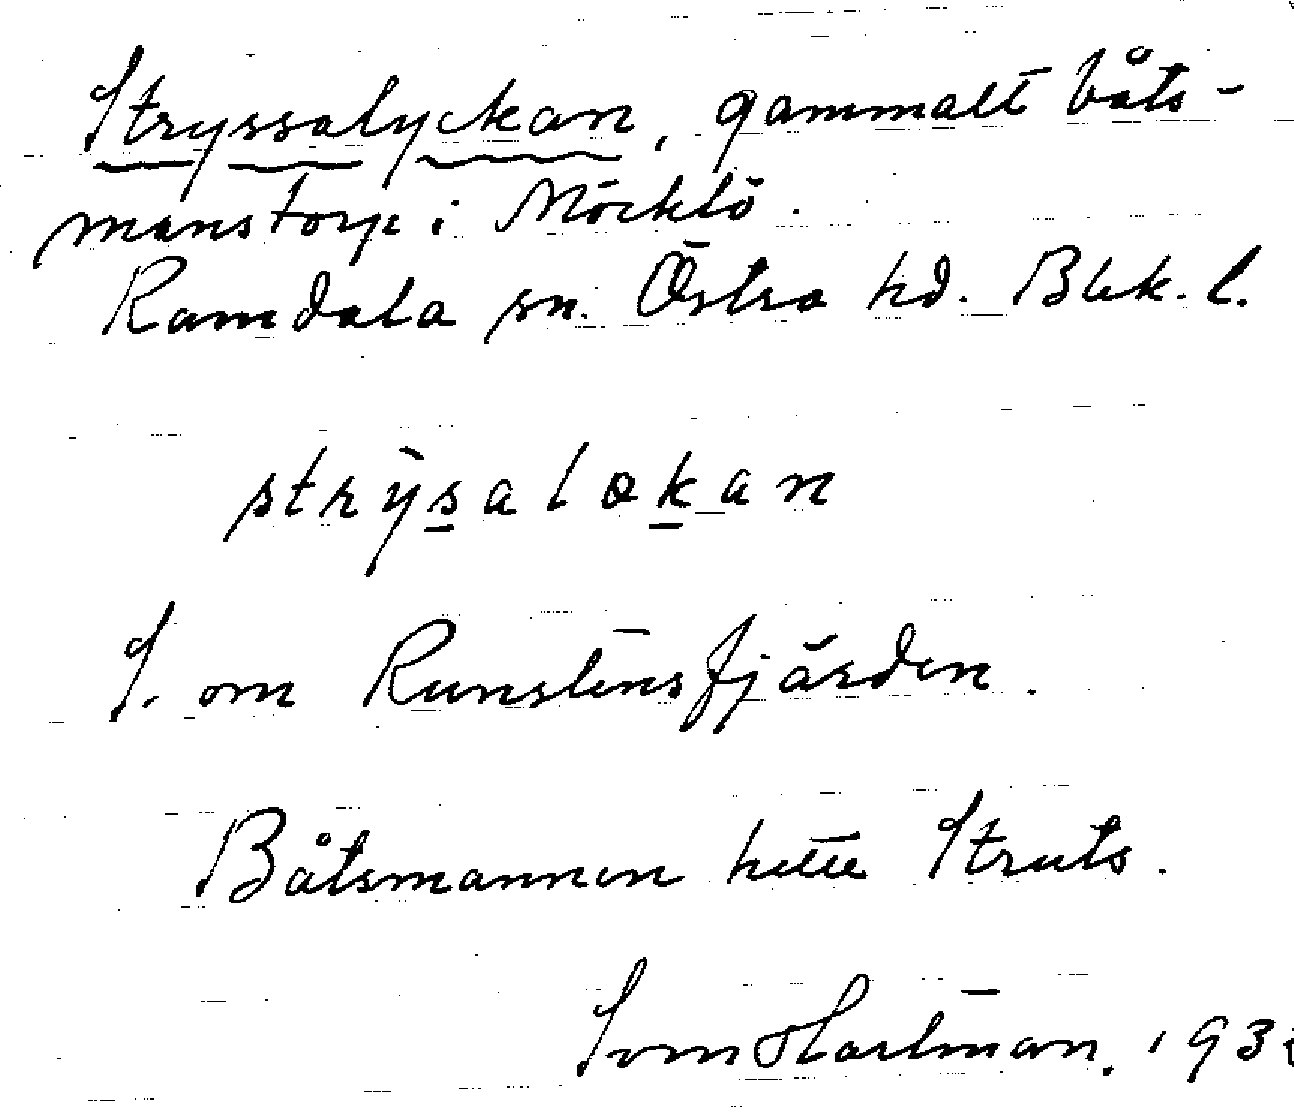 Stryssalyckan, gammalt båts-
manstorp i Möcklö.
Ramdala sn. Östra hd. Blek. l.
strỳsalokan
S. om Runstensfjärden.
Båtsmannen hette Struts.
Sven Hartman, 193